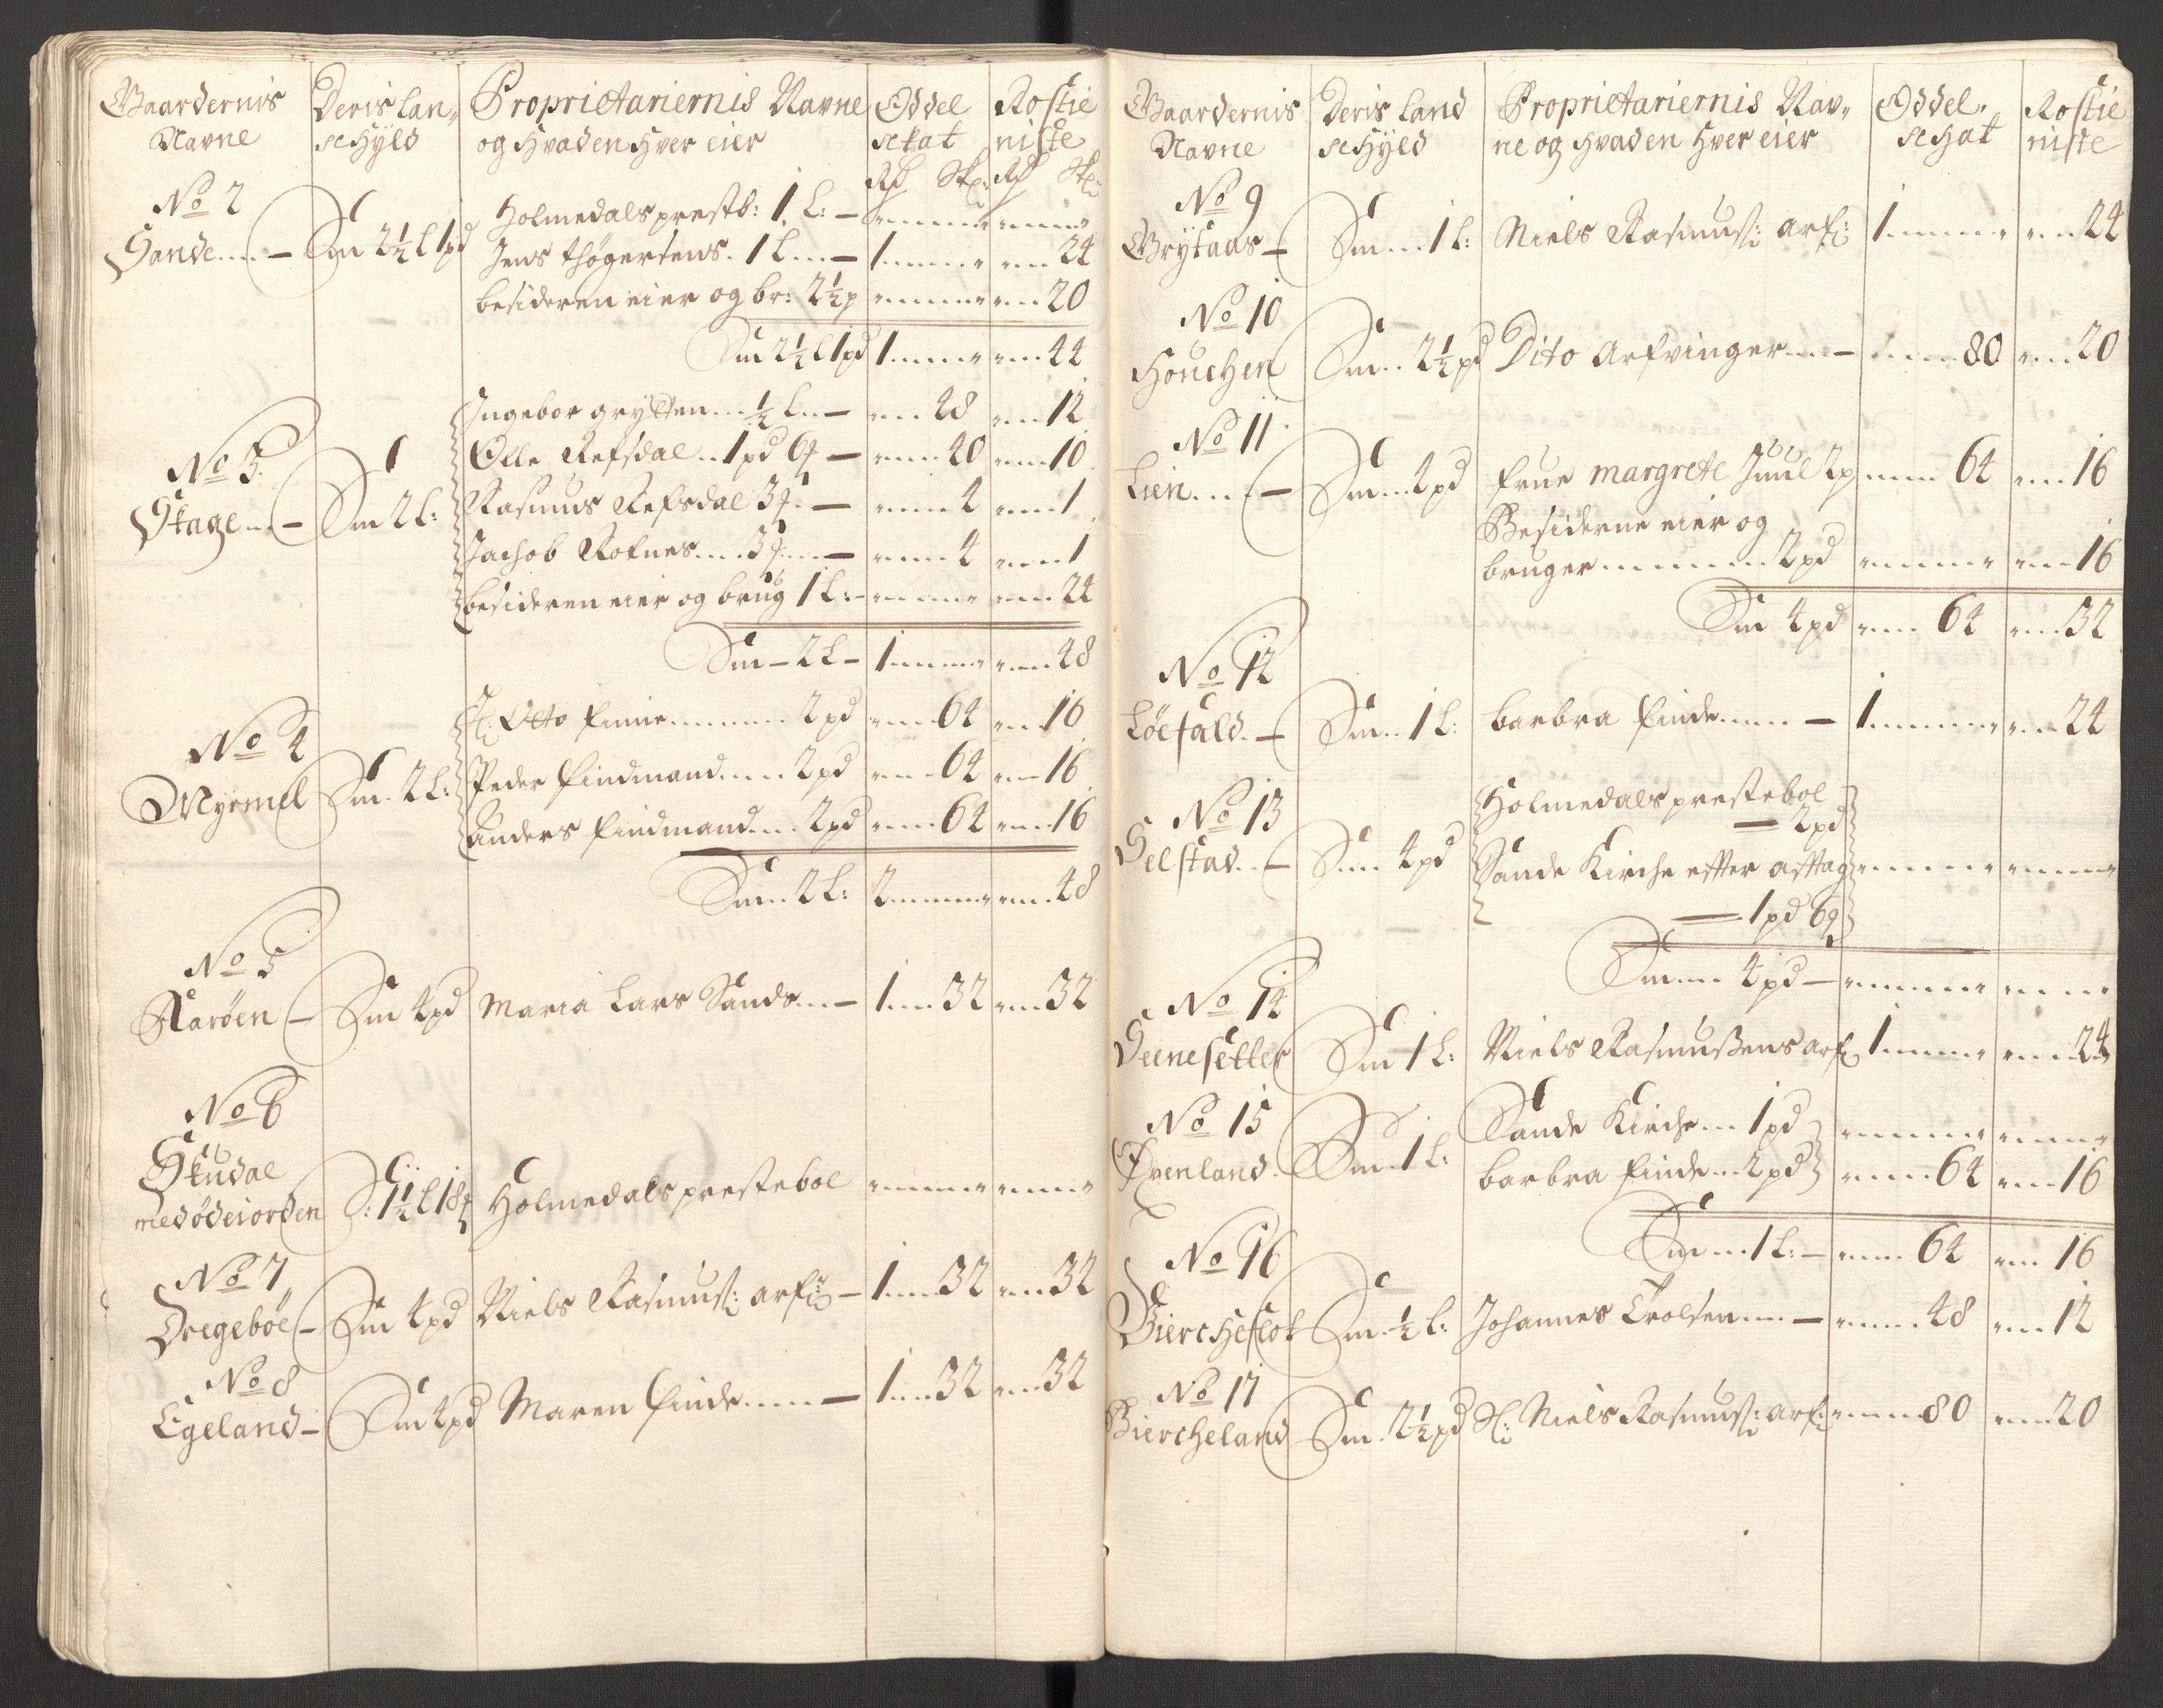 Gaardernis Navne | Deris Lan„ schÿld | Proprietariernis Navne og hvad en hver eier | Oddel skat | Rostie niste
Rd Sk: Rd Sk:
No 2
Sande — Sm 2½ L 1 pd
Holmedals prestb: 1 L: —
Jens thøgersens 1 L — 1 24
besideren eier og br: 2½ p 20
Sm 2½ L 1 pd 1 44
No 3
Skage — Sm 2 L:
Ingebor grÿtten ½ L — 48 12
Olle Refsdal 1 pd 6 — 40 10
Rasmus Refsdal 3 — 4 1
Jachob Rofnes 3 — 4 1
besideren eier og brug 1 L: — 24
Sm — 2 L — 1 48
No 4
Mÿrmel Sm 2 L:
Sl: Otto Finne 2 pd 64 16
Peder Findmand 2 pd 64 16
Anders Findmand 2 pd 64 16
Sm 2 L: 2 48
No 5
Aarøen — Sm 4 pd Maria Lars Sands — 1 32 32
No 6
Skudal
med ødeiorden S: 1½ L 18 Holmedals prestebol
No 7
Dregebøe — Sm 4 pd Niels Rasmus: arf: — 1 32 32
No 8
Egeland — Sm 4 pd Maren Finde — 1 32 32
Gaardernis Navne | Deris Land schÿld | Proprietariernis Nav„ ne og hvad en hver eier | Oddel. schat | Rostie niste
No 9
Grÿtaas — Sm 1 L: Niels Rasmus: arf: 1 24
No 10
Houchen Sm 2½ pd Dito Arfvinger — 80 20
No 11
Lien — Sm 4 pd Frue margrete Juul 2 p 64 16
Besiderne eier og
bruger 2 pd 16
Sm 4 pd 64 32
No 12
Løefald — Sm 1 L: barbra Finde — 1 24
No 13
Selstad — Sm 4 pd
Holmedals prestebol
— 2 pd
Sande Kirche efter afftag
— 1 pd 6
Sm 4 pd —
No 14
Seenesetter Sm 1 L: Niels Rasmusens arf: 1 24
No 15
Øvenland Sm 1 L: Sande Kirche 1 pd
barbra Finde 2 pd 64 16
Sm 1 L: — 64 16
No 16
Biercheflot Sm ½ L: Johannes Trolsen — 48 12
No 17
Biercheland Sm 2½ pd Sl: Niels Rasmus: arf: 80 20